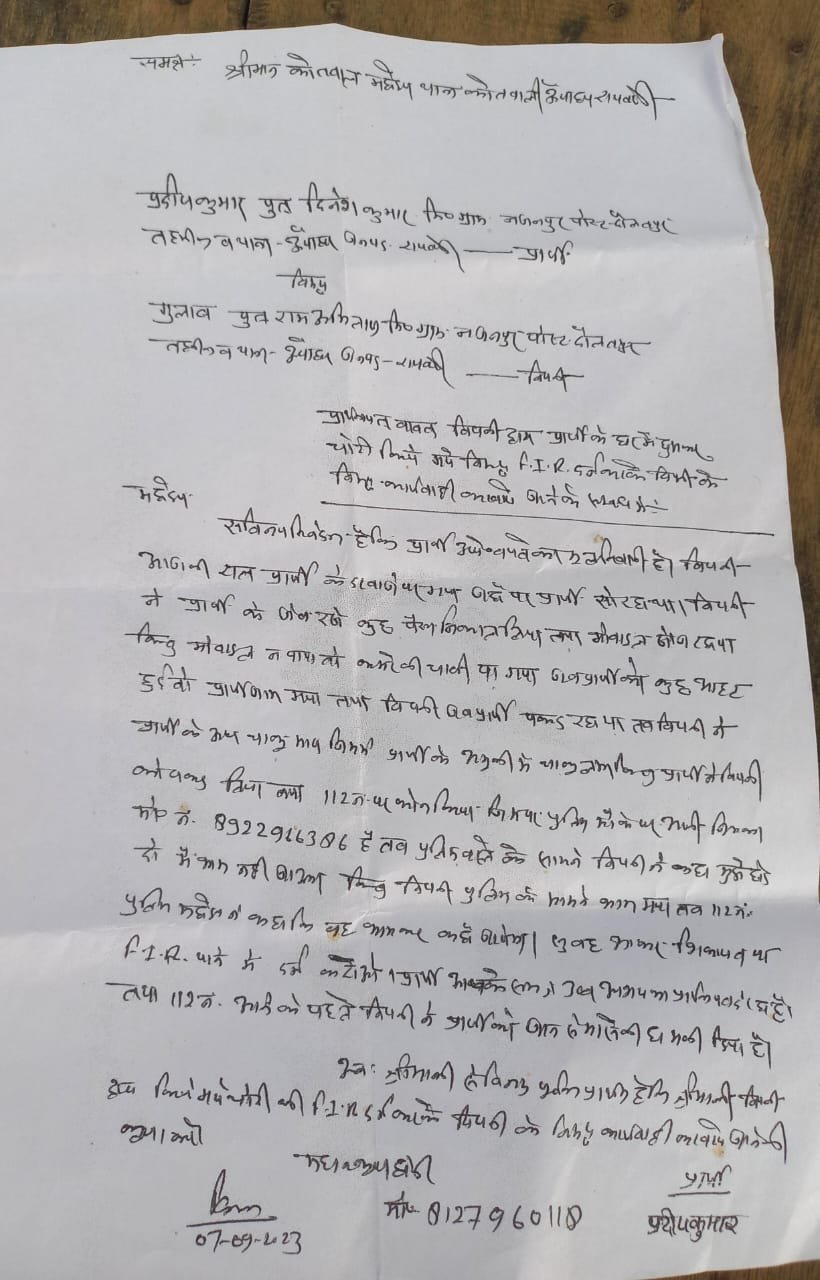 समक्ष: श्रीमान कोतवाल महोदय थाना कोतवाली ऊँचाहार रायबरेली
प्रदीपकुमार पुत्र दिनेश कुमार नि०ग्राम पोस्ट-दौलतपुर
तहसील व थाना-ऊँचाहार जनपद-रायबरेली — प्रार्थी
विरुद्ध
गुलाब पुत्र राम नि०ग्राम पोस्ट-दौलतपुर
तहसील व थाना-ऊँचाहार जनपद-रायबरेली — विपक्षी
प्रार्थनापत्र बावत विपक्षी द्वारा प्रार्थी के घर में घुसकर
चोरी किये गये विरुद्ध F.I.R. दर्ज करके विपक्षी के
विरुद्ध कार्यवाही करवाये जाने के सम्बन्ध में:-
महोदय
सविनय निवेदन है कि प्रार्थी उपरोक्त पते का निवासी है। विपक्षी
आज की रात प्रार्थी के दरवाजे पर गया जहाँ पर प्रार्थी सो रहा था। विपक्षी
ने प्रार्थी के जेब रखे कुछ पैसे निकाल लिया तथा मोबाइल खोज रहा था
किन्तु मोबाइल न पाया तो कमरे की चाबी पा गया जब प्रार्थी को कुछ आहट
हुई तो प्रार्थी जाग गया तथा विपक्षी जब प्रार्थी पकड़ रहा था तब विपक्षी ने
प्रार्थी के चाकू मारा जिससे प्रार्थी के अंगुली में चाकू लगा किन्तु प्रार्थी ने विपक्षी
को पकड़ लिया तथा 112 नं० पर फोन किया जिसपर पुलिस मौके पर आयी जिसका
मो० नं. 8922966386 है तब पुलिस वाले के सामने विपक्षी ने कहा मुझे छोड़
दो मैं भाग नहीं जाऊंगा किन्तु विपक्षी पुलिस के सामने भाग गया तब 112 नं.
पुलिस महोदय ने कहा कि वह भागकर कहाँ जायेगा। सुबह आकर शिकायत पर
F.I.R. थाने में दर्ज करा देंगे। प्रार्थी आपके समक्ष उक्त आशय का प्रार्थनापत्र दे रहा है।
तथा 112 नं. आने के पहले विपक्षी ने प्रार्थी को जान से मारने की धमकी दिया है।
अत: श्रीमान जी से विनम्र प्रार्थना है कि श्रीमान जी विपक्षी
द्वारा किये गये चोरी की F.I.R दर्ज करके विपक्षी के विरुद्ध कार्यवाही करवाये जाने की
कृपा करें
महान कृपा होगी
प्रार्थी
मो०- 8127960118
प्रदीपकुमार
07-09-2023